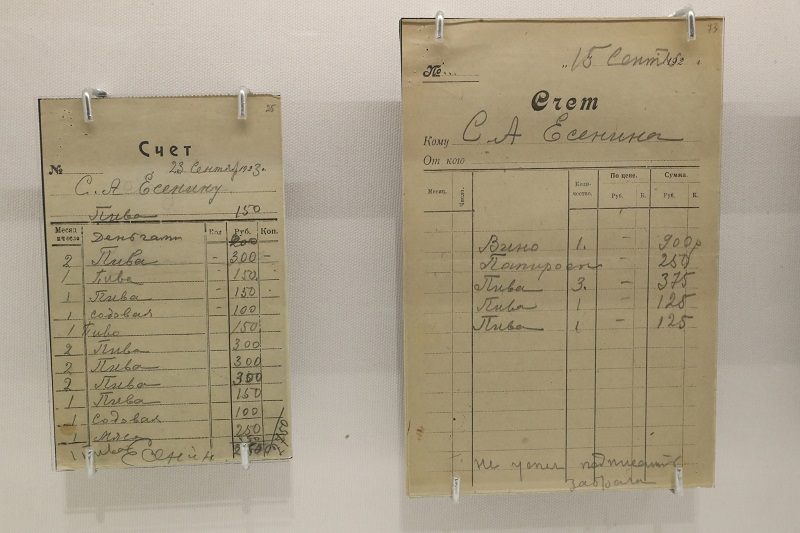 25
Счет
№ 23 Сентяб
С. А Есенину
Пива 150
Месяц и число Коп Руб. Коп.
Деньгами 200
2 Пива - 300 -
1 Пива - 150
1 Пива - 150
1 содовая - 100
1 Пиво 150
2 Пива 300
2 Пива 300
2 Пива 300
1 Пива 150
1 содовая 100
1 Мясо 250
1 Пива
Есенин
73
№ ...
15 Сент 192
Счет
Кому С А Есенина
От кого
Месяц. Число. Коли-чество. По цене. Сумма.
Руб. К. Руб. К.
Вино 1. - 900р
Папиросы - 250
Пива 3. - 375
Пива 1 - 125
Пива 1 - 125
не успел подписать
забрали